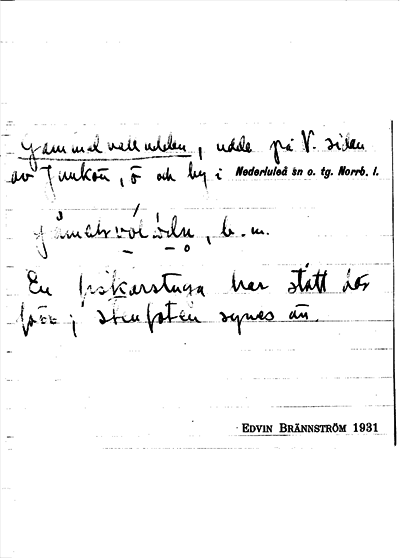 Gammelvalludden, udde på V. sidan
av Junkön, ö och by i Nederluleå sn o. tg. Norrb. l.
b. m.
En fiskarstuga har stått här
förr; stenfoten synes än.
EDVIN BRÄNNSTRÖM 1931